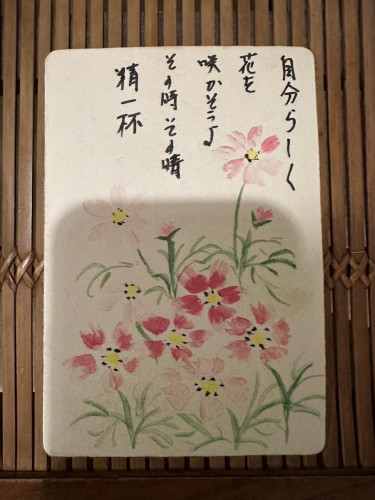 自分らしく
花を
咲かそうよ
その時その時
精一杯